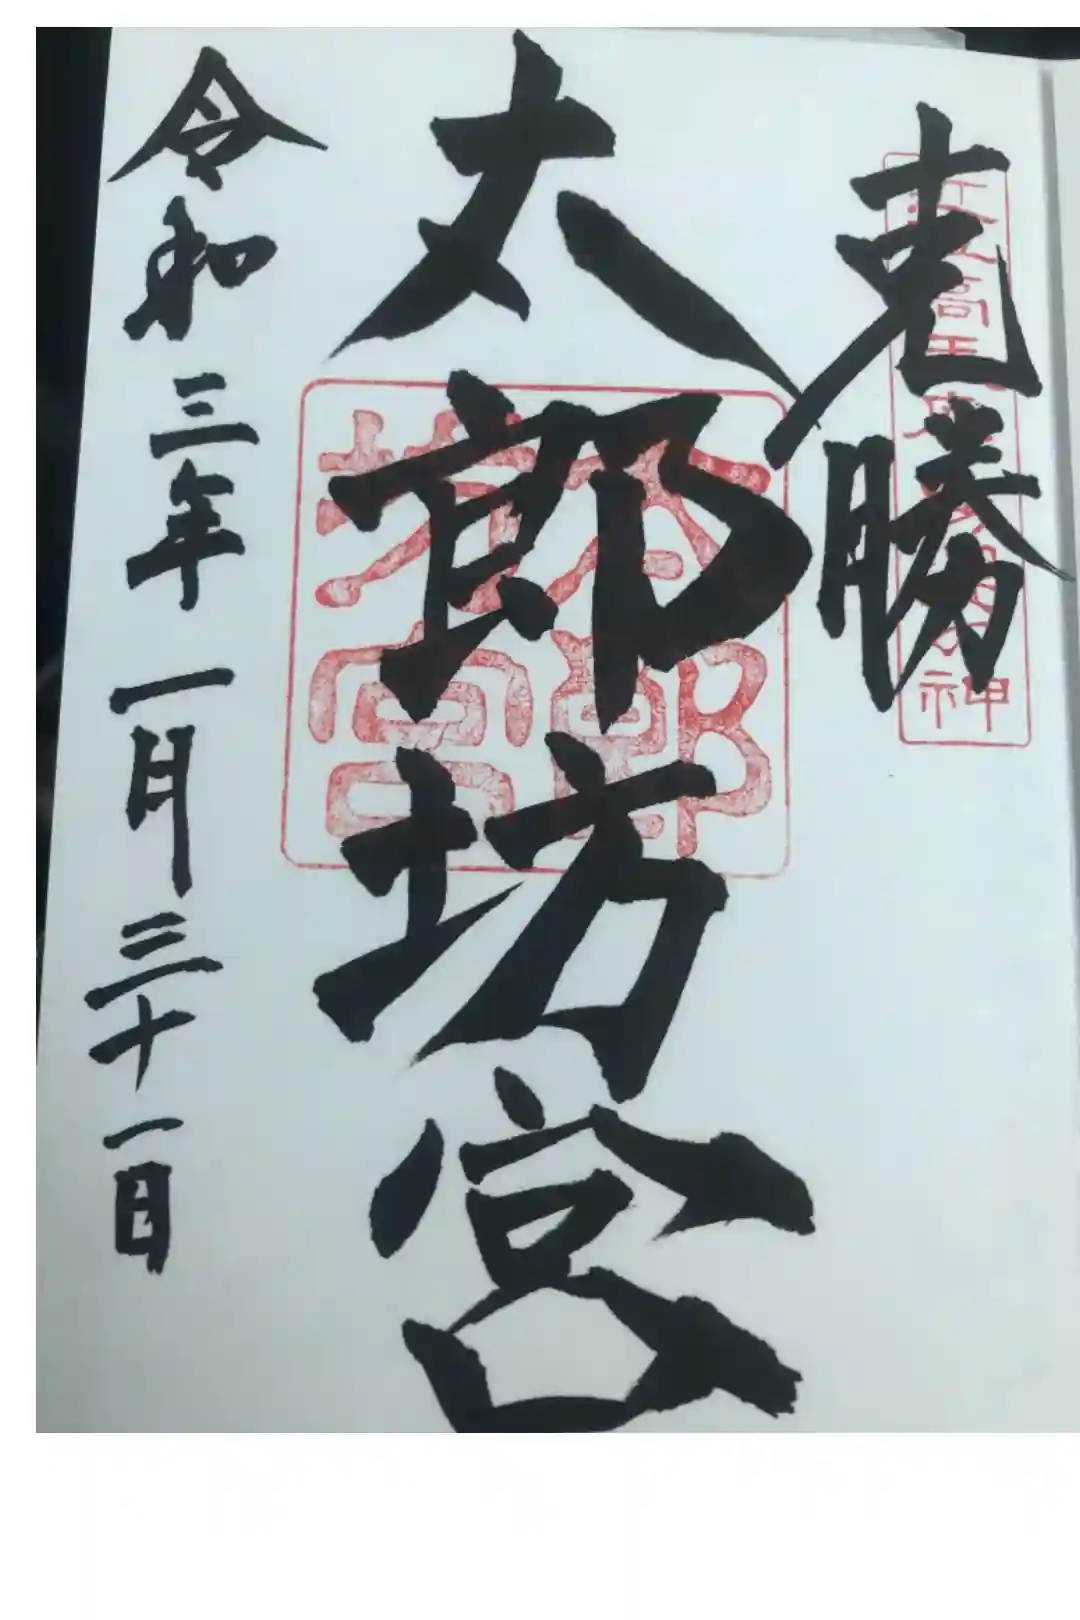 克勝
太郎坊宮
令和三年一月三十一日
太郎坊宮